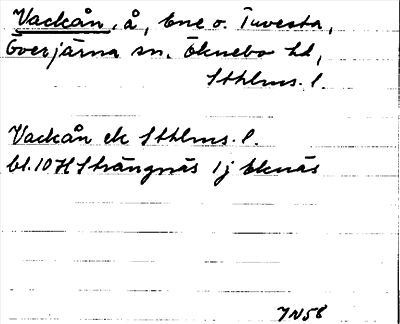 Vackån, å, Ene o. Tuvesta,
Överjärna sn. Öknebo hd,
Sthlms. l.
Vackån ek Sthlms. l.
bl. 10 H Strängnäs 1j Eknäs
JN58